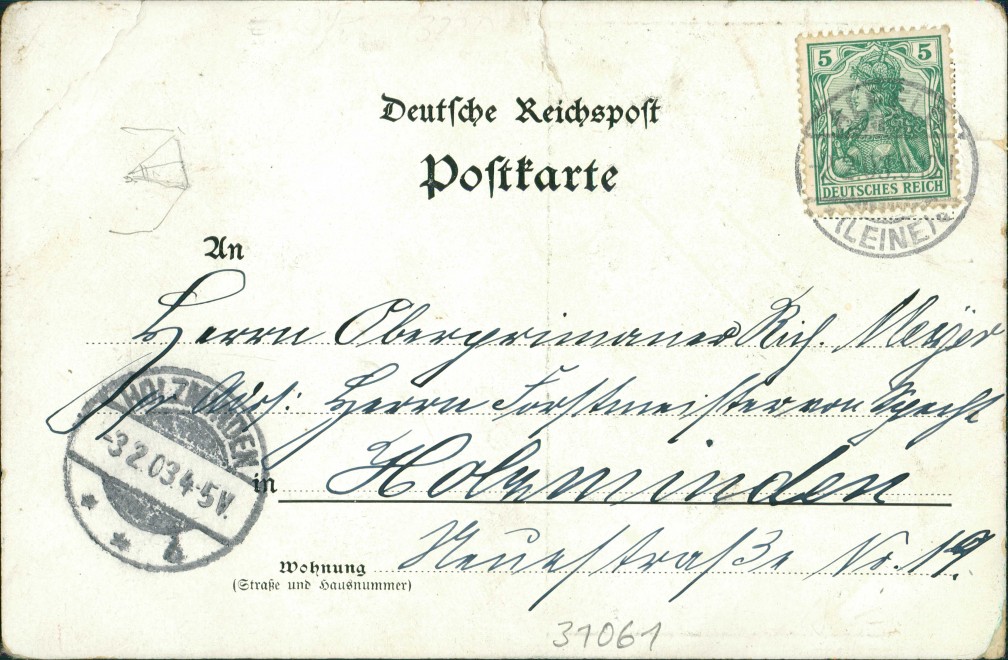 5 5
DEUTSCHES REICH
(LEINE) a
Deutsche Reichspost
Postkarte
An
Herrn Oberprimaner Rich. Meyer
pr Adr: Herrn Forstmeister von Specht
in Holzminden
Neuestraße No. 19.
Wohnung
(Straße und Hausnummer)
HOLZMINDEN
-3.2.03.4-5V.
* * b
31061